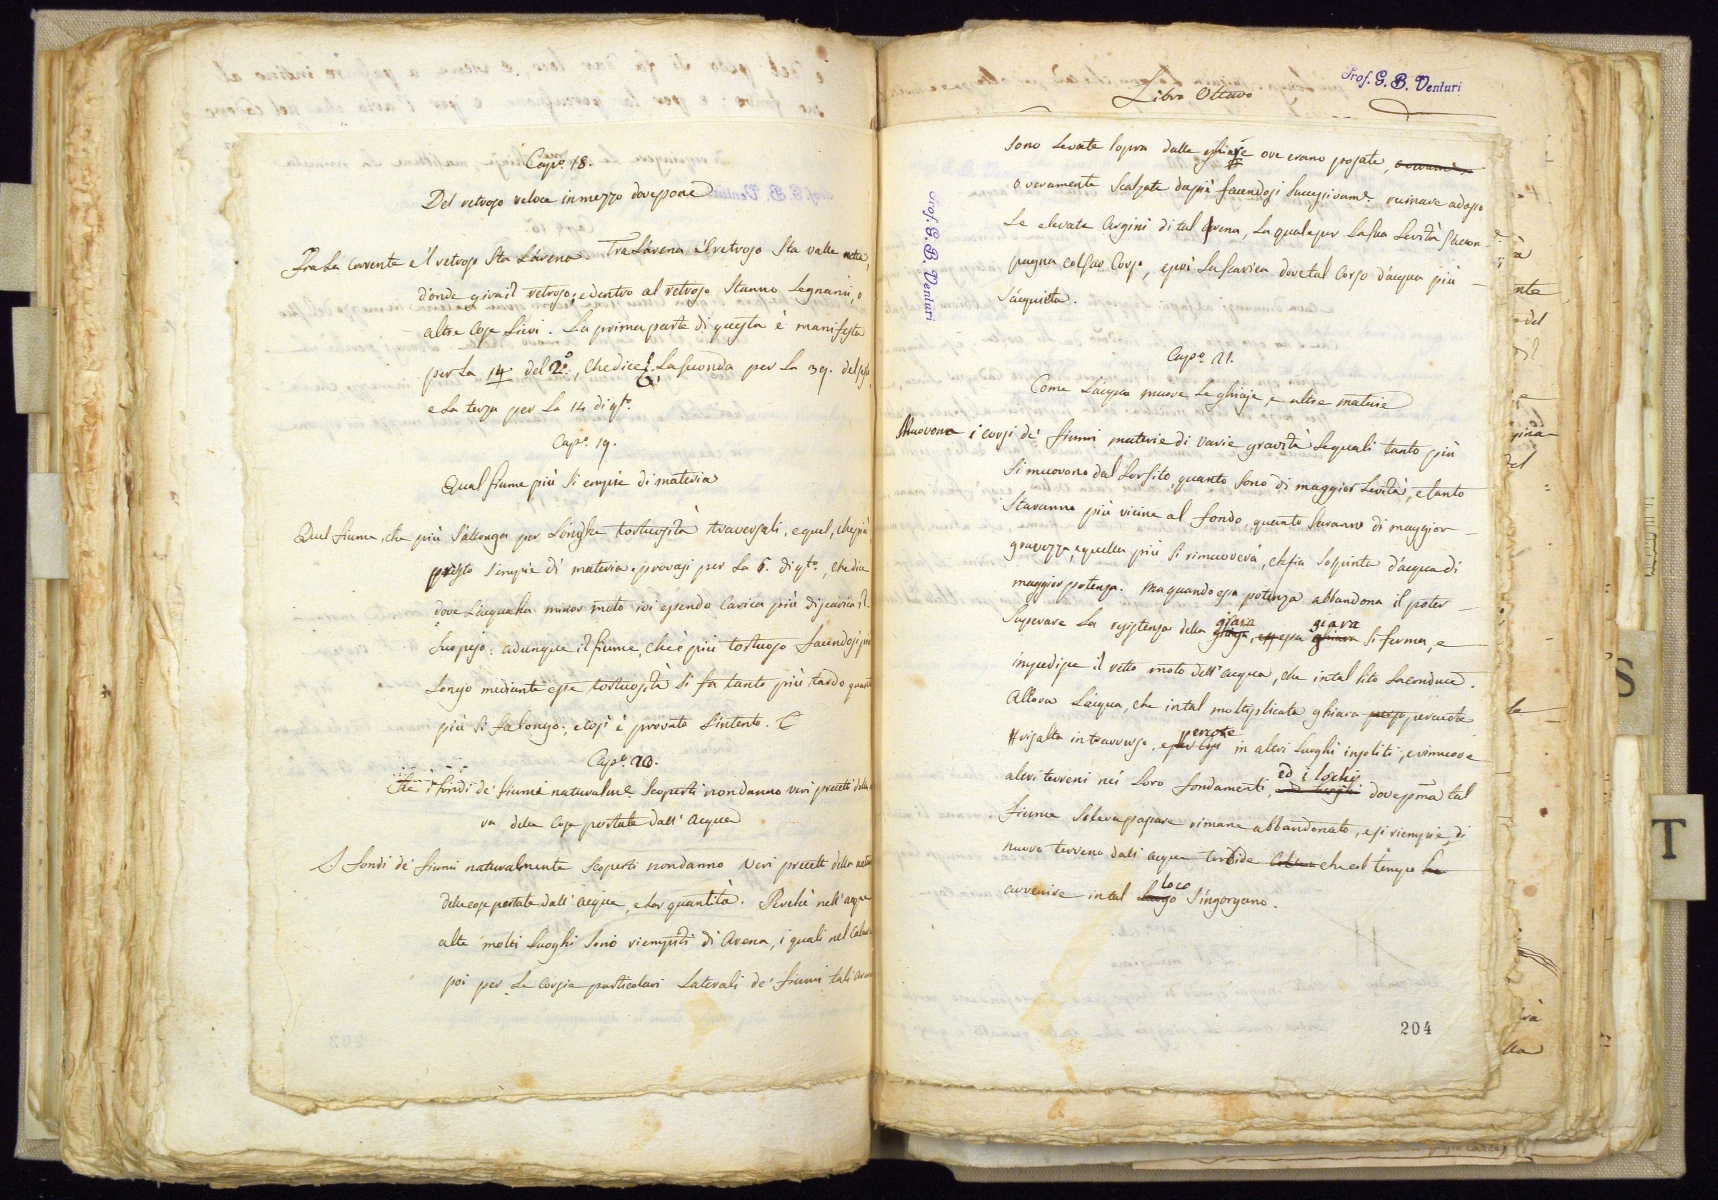 Capo. 18.
Del retroso veloce in mezzo dovepone
Fra La corrente e'l retroso Sta L'arena. Tra L'arena e'l retroso Sta valle netta,
d'onde gira il retroso; e dentro al retroso Stanno Legnami, o
altre Cose Lievi. La prima parte di questa è manifesta
per La 14 del 2º., Che dice &. La seconda per La 39. del
e La terza per La 14 di qto.
Capo. 19.
Qual fiume più Si empie di materia
Quel fiume, che più S'allonga per Lunghe tortuosità traversali, e quel, che più
presto S'empie di materia. provasi per La 6. di qto., che dice
dove L'acqua ha minor moto ivi essendo Carica più Discarica il
Suo peso: adunque il fiume, che è più tortuoso facendosi più
Longo mediante essa tortuosità Si fa tanto più tardo quanto
più Si fa longo; e così è provato L'intento.
Capo. 20.
Che i fondi de' fiumi naturalme Scoperti non danno veri precetti della
ra delle Cose portate dall' acqua
I fondi de' fiumi naturalmente Scoperti non danno veri precetti della natu
delle cose portate dall' acqua, e Lor quantità. Perchè nell' acque
alte molti Luoghi Sono riempiti di Arena, i quali nel Calare
poi per Le Corsie particolari Laterali de' fiumi tali arene
Libro Ottavo
Prof. G. B. Venturi
Prof. G. B. Venturi
Sono Levate Sopra dalle ghiaje ove erano posate,
o veramente Scalzate dapiù facendosi Successivame. ruinare adosso
Le elevate Argini di tal Arena, La quale per La Sua Levità S'acom-
pagna col suo Corso, e poi La Scarica dove tal Corso d'acqua più
S'acquieta.
Capo. 21.
Come L'acqua muove Le ghiaje e altre materie
Muovono i corsi de' fiumi materie di varie gravità Le quali tanto più
Si muovono dal Lor Sito, quanto Sono di maggior Levità, e tanto
Staranno più vicine al fondo, quanto Saranno di maggior
gravezza, e quella più Si rimuoverà, che fia Sospinta d'acqua di
maggior potenza. Ma quando essa potenza abbandona il poter
Superare La resistenza della giara, essa giara Si ferma, e
impedisce il retto moto dell' acqua, che in tal Sito La conduce.
Allora L'acqua, che in tal moltiplicata ghiara percuote
risalta in traverso, e percote in altri Luoghi insoliti; e rimuove
altri terreni nei Loro fondamenti, ed i lochi dove pma tal
fiume Soleva passare rimane abbandonato, e si riempie di
nuovo terreno dali acque torbide che col tempo
avvenire in tal loco S'ingorgano.
204
S
T